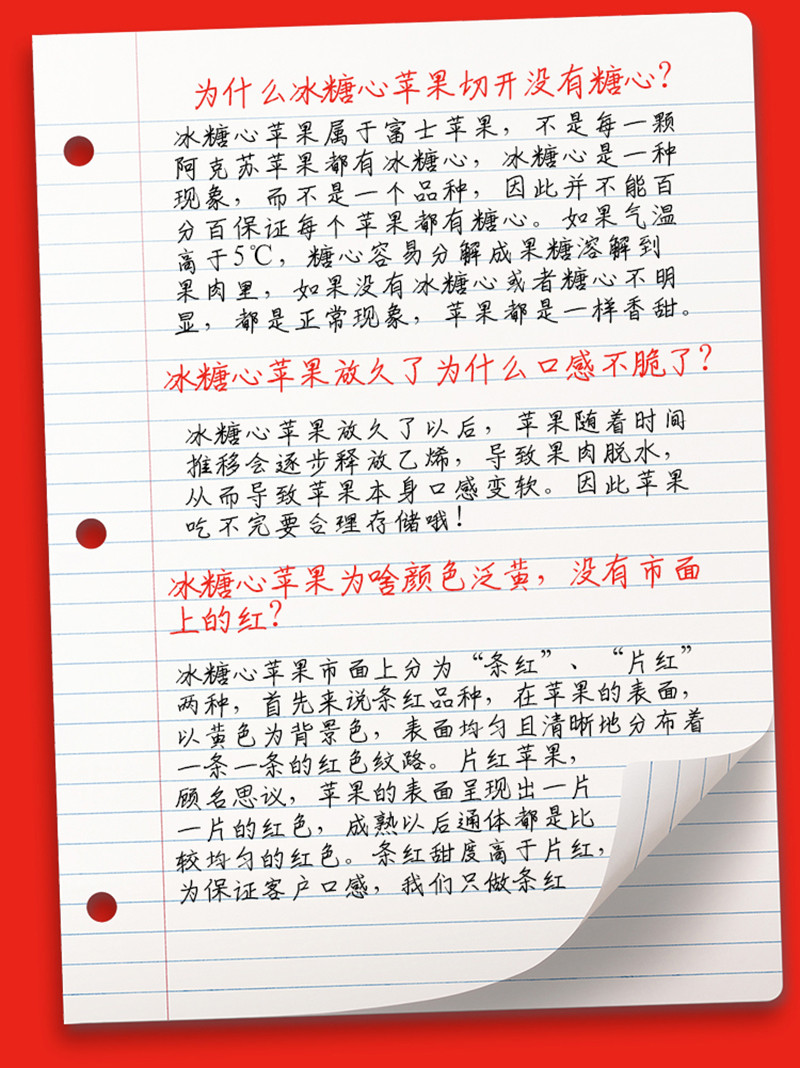 为什么冰糖心苹果切开没有糖心?
冰糖心苹果属于富士苹果，不是每一颗
阿克苏苹果都有冰糖心，冰糖心是一种
现象，而不是一个品种，因此并不能百
分百保证每个苹果都有糖心。如果气温
高于5℃，糖心容易分解成果糖溶解到
果肉里，如果没有冰糖心或者糖心不明
显，都是正常现象，苹果都是一样香甜。
冰糖心苹果放久了为什么口感不脆了?
冰糖心苹果放久了以后，苹果随着时间
推移会逐步释放乙烯，导致果肉脱水，
从而导致苹果本身口感变软。因此苹果
吃不完要合理存储哦!
冰糖心苹果为啥颜色泛黄，没有市面
上的红?
冰糖心苹果市面上分为“条红”、“片红”
两种，首先来说条红品种，在苹果的表面，
以黄色为背景色，表面均匀且清晰地分布着
一条一条的红色纹路。片红苹果，
顾名思议，苹果的表面呈现出一片
一片的红色，成熟以后通体都是比
较均匀的红色。条红甜度高于片红，
为保证客户口感，我们只做条红